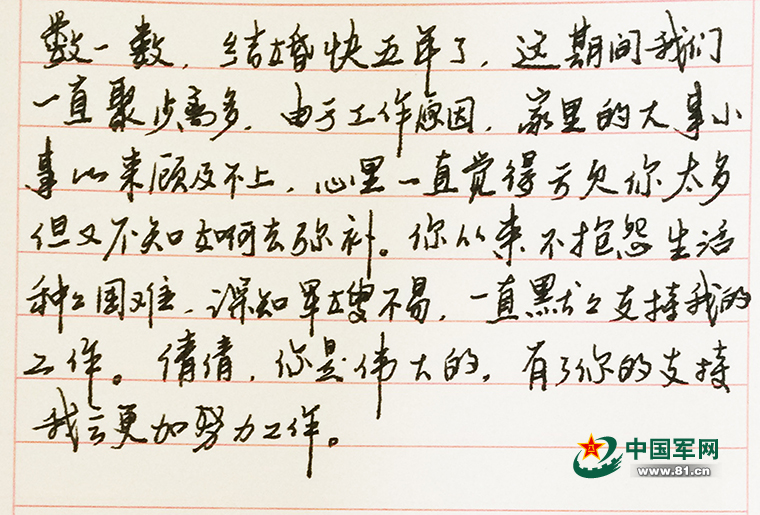 数一数，结婚快五年了，这期间我们
一直聚少离多，由于工作原因，家里的大事小
事从来顾及不上，心里一直觉得亏欠你太多
但又不知如何去弥补。你从来不抱怨生活
种种困难，深知军嫂不易，一直默默支持我的
工作。倩倩，你是伟大的，有了你的支持
我会更加努力工作。
中国军网
www.81.cn